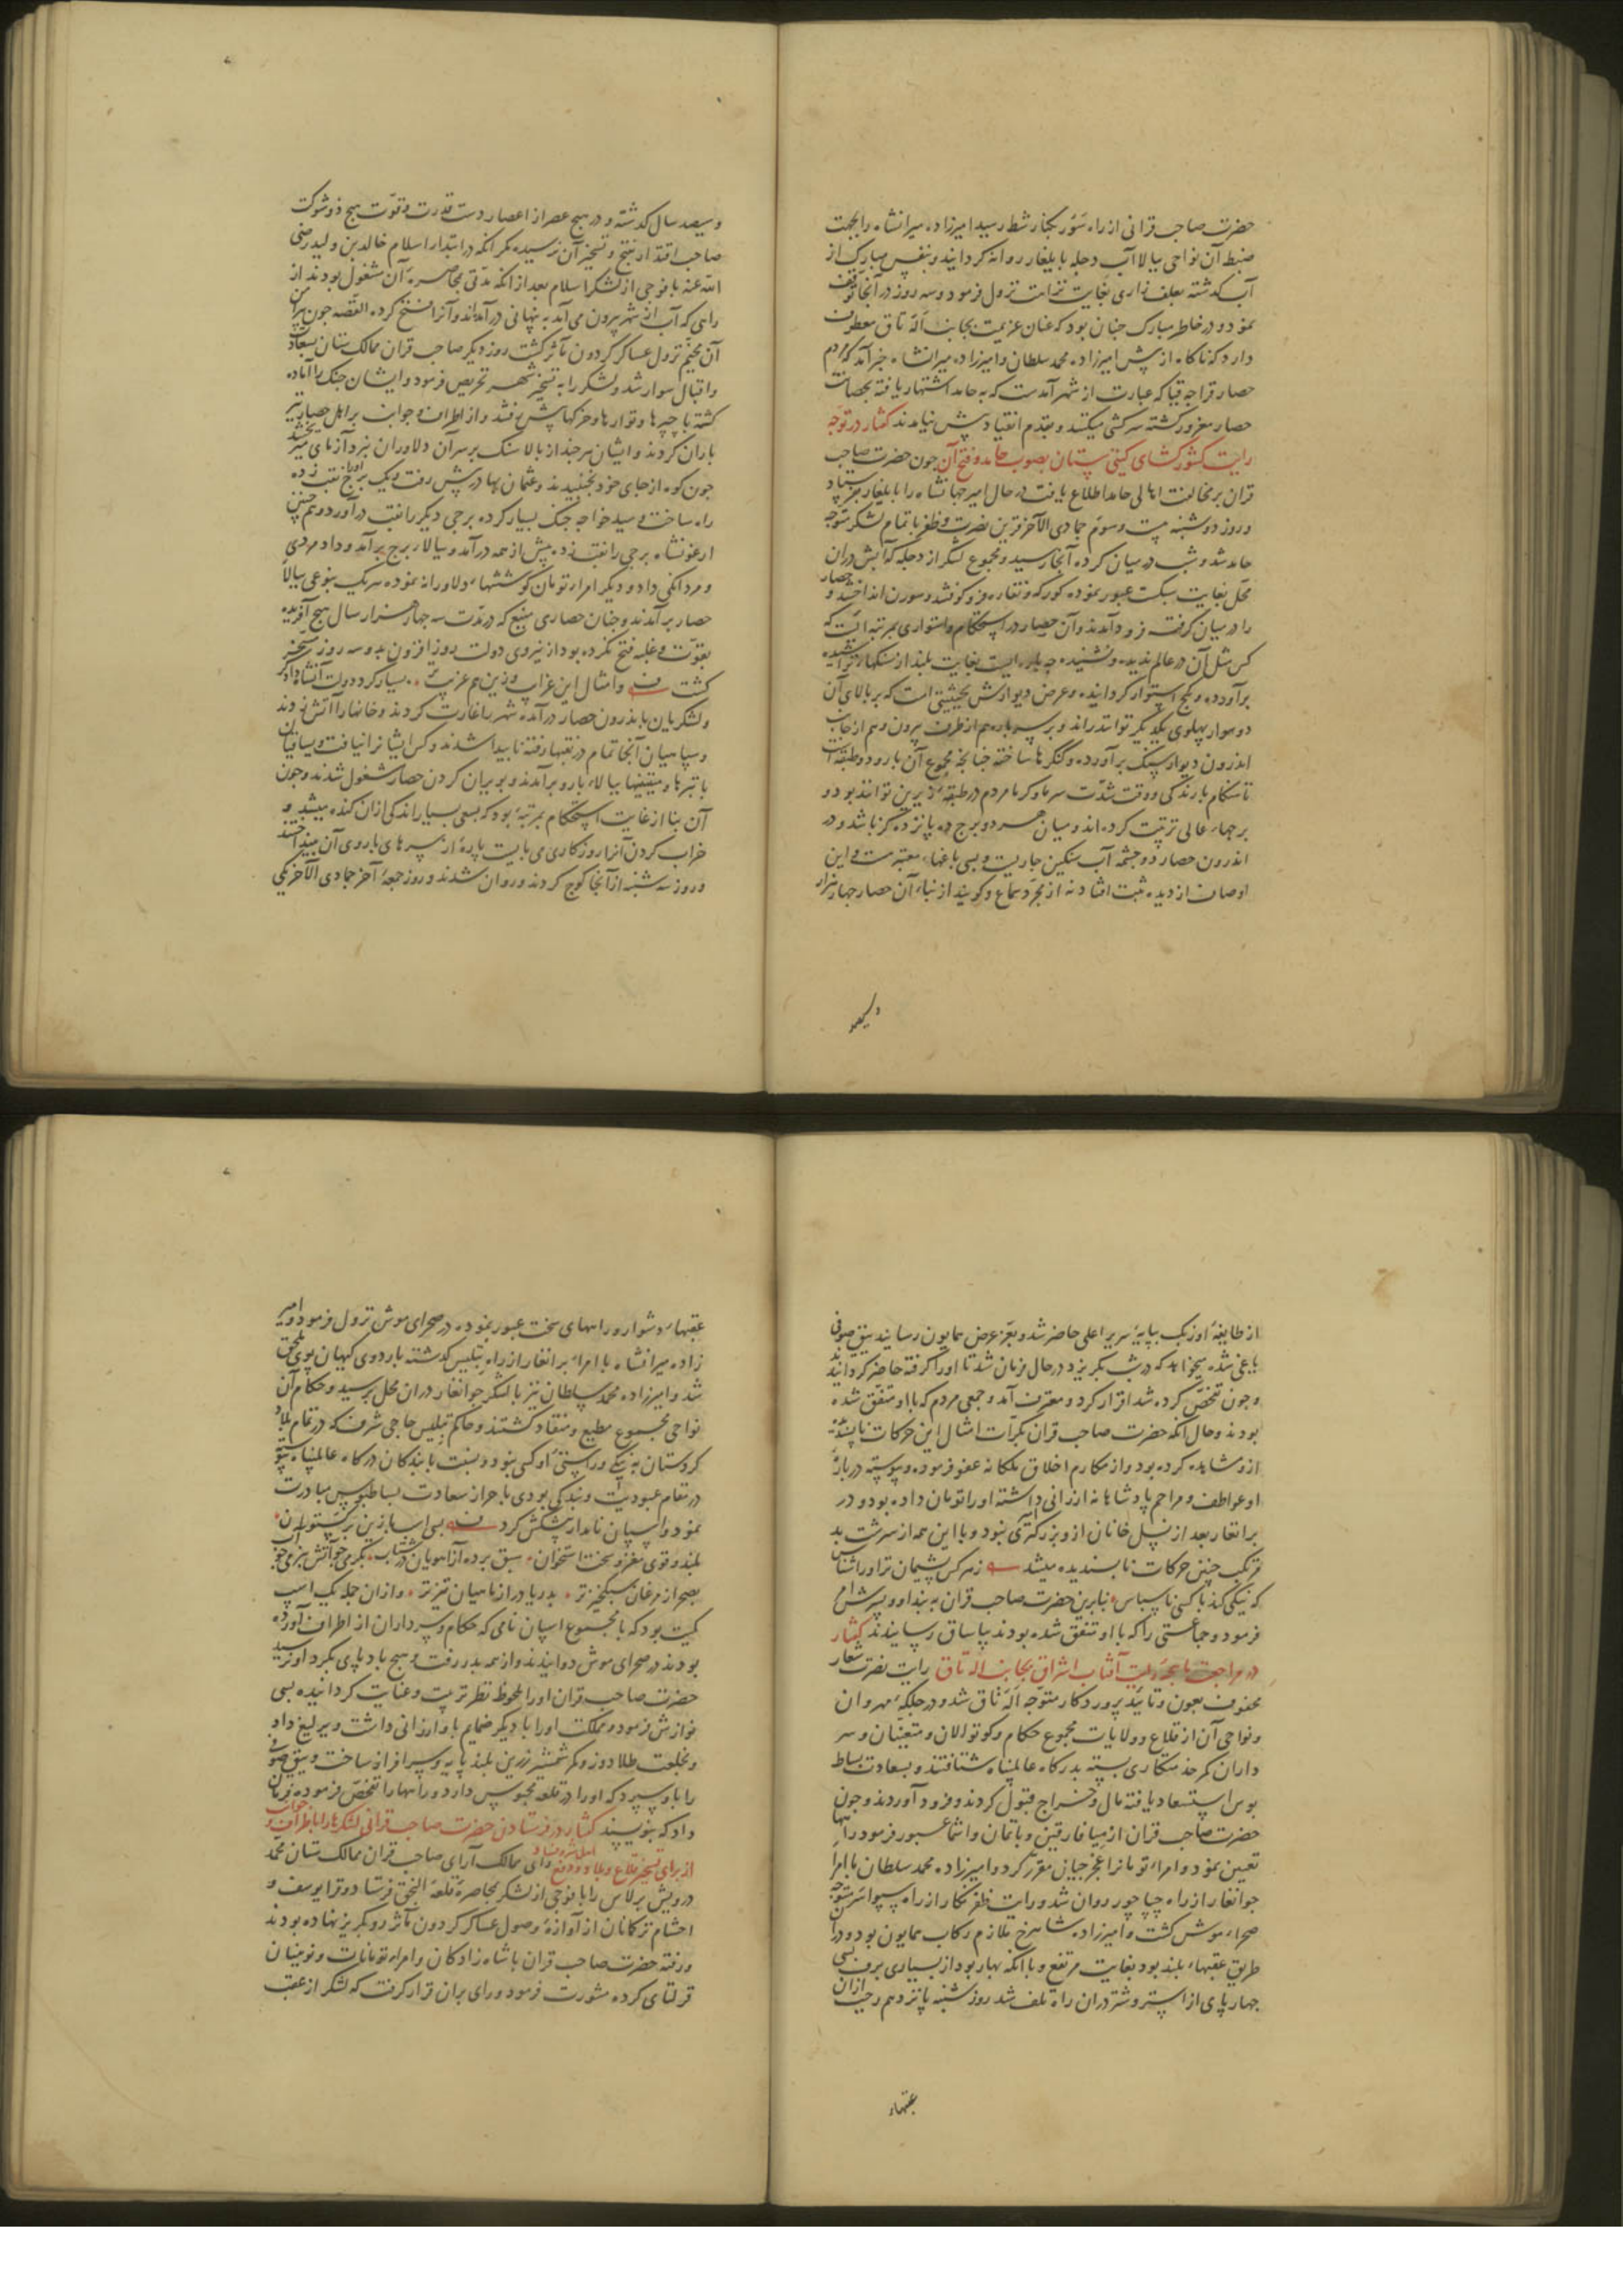 حضرت صاحب قرانی از راه سور بکنار شط رسید امیرزاده میرانشاه را بجهت
ضبط آن نواحی ببالا آب دجله بایلغار روانه کردانید و بنفس مبارک از
آب کذشته بعلف زاری بغایت نزاهت نزول فرمود و سه روز در آنجا توقف
نمود و در خاطر مبارک چنان بود که عنان عزیمت بجانب اله تاق معطوف
دارد که ناکاه از پیش امیرزاده محمد سلطان و امیرزاده میرانشاه خبر آمد که مردم
حصار قراجه قیا که عبارت از شهر آمدست که به حامد اشتهار یافته بحصانت
حصار مغرور کشته سرکشی میکنند و بقدم انقیاد پیش نیامدند کفتار در توجه
رایت کشورکشای کیتی ستان بصوب حامد و فتح آن چون حضرت صاحب
قران بر مخالفت اهالی حامد اطلاع یافت در حال امیر جهانشاه را بایلغار بفرستاد
و روز دوشنبه بیست و سوم جمادی الآخر قرین نصرت و ظفر با تمام لشکر متوجه
حامد شد و شب در میان کرده آنجا رسید و مجموع لشکر از دجله که آبش در آن
محل بغایت سبکست عبور نموده کورکه و نقاره فرو کوفتند و سورن انداختند و حصار
را در میان کرفته فرود آمدند و آن حصار در استحکام و استواری بمرتبه ایست که
کس مثل آن در عالم ندیده و نشنیده چه باره ایست بغایت بلند از سنکهاء تراشیده
برآورده و بکچ استوار کردانیده و عرض دیوارش بحیثیتی است که بر بالای آن
دو سوار پهلوی یکدیکر توانند راند و بر سر باره هم از طرف بیرون و هم از جانب
اندرون دیوار سنک برآورده و کنکرها ساخته چنانچه مجموع آن بارو دو طبقه است
تا هنکام بارندکی و وقت شدت سرما و کرما مردم در طبقه زیرین توانند بود و
برجهاء عالی ترتیب کرده اند و میان هر دو برج ده پانزده کز باشد و در
اندرون حصار دو چشمه آب سنکین جاریست و بسی باغهاء معتبرست و این
اوصاف از دیده ثبت افتاد نه از مجرد سماع و کویند از بناء آن حصار چهار هزار
وسیصد
وسیصد سال کذشته و در هیچ عصر از اعصار دست قدرت و قوت هیچ ذوشوکت
صاحب اقتدار بفتح و تسخیر آن نرسیده مکر آنکه در ابتداء اسلام خالد بن ولید رضی
الله عنه با فوجی از لشکر اسلام بعد از آنکه مدتی بمحاصره آن مشغول بودند از
راهی که آب از شهر بیرون می آمد به پنهانی در آمدند و آنرا فتح کرد القصه چون پیرامن
آن مخیم نزول عساکر کردون مآثر کشت روز دیکر صاحب قران ممالک ستان بسعادت
و اقبال سوار شد و لشکر را به تسخیر شهر تحریص فرمود و ایشان جنک را آماده
کشته با چپرها و توارها و خرکها پیش رفتند و از اطراف و جوانب بر اهل حصار تیر
باران کردند و ایشان هرچند از بالا سنک بر سر آن دلاوران نبردآزمای میریختند
چون کوه از جای خود نجنبیدند و عثمان بهادر پیش رفت و یک برج را نقب زده
راه ساخت و سید خواجه جنک بسیار کرده برجی دیکر را نقب درآورد و همچنین
ارغونشاه برجی را نقب زده پیش از همه درآمد و ببالاء برج برآمد و داد مردی
و مردانکی داد و دیکر امراء تومان کوششهاء دلاورانه نموده هر یک بنوعی ببالاء
حصار برآمدند و چنان حصاری منیع که در مدت سه چهار هزار سال هیچ آفریده
بقوت و غلبه فتح نکرده بود از نیروی دولت روز افزون بدو سه روز مسخر
کشت و امثال این غرایب و زین هم غریبتر بسیار کرد دولت آنشاه دادکر
و لشکریان باندرون حصار درآمده شهر را غارت کردند و خانها را آتش زدند
و سپاهیان آنجا تمام در نقبها رفته ناپیدا شدند و کس ایشانرا نیافت و یساقیان
با تبرها و میتینها ببالاء بارو برآمدند و بویران کردن حصار مشغول شدند و چون
آن بنا از غایت استحکام بمرتبه بود که بسعی بسیار اندکی از آن کنده میشد و
خراب کردن آنرا روزکاری می بایست پاره از سرهای باروی آن بینداختند
و روز سه شنبه از آنجا کوچ کردند و روان شدند و روز جمعه آخر جمادی الآخر یکی
از طایفه اوزبک بپایه سریر اعلی حاضر شد و بعز عرض همایون رسانید که یبق صوفی
یاغی شده میخواهد که در شب بکریزد در حال فرمان شد تا او را کرفته حاضر کردانند
و چون تفحص کرده شد اقرار کرد و معترف آمد و جمعی مردم که با او متفق شده
بودند و حال آنکه حضرت صاحب قران بکرات امثال این حرکات ناپسندیده
از و مشاهده کرده بود و از مکارم اخلاق ملکانه عفو فرموده و پیوسته درباره
او عواطف و مراحم پادشاهانه ارزانی داشته او را تومان داده بود و در
برانغار بعد از نسل خانان ازو بزرکتری نبود و با این همه از سرشت بد
مرتکب چنین حرکات ناپسندیده میشد ز هر کس پشیمان تر او را شناس
که نیکی کند با کسی ناسپاس بنابرین حضرت صاحب قران به بند او و پسرش امر
فرمود و جماعتی را که با او متفق شده بودند بیاساق رسانیدند کفتار
در مراجعت رایت آفتاب اشراق بجانب اله تاق رایت نصرت شعار
محفوف بعون و تایید پرورد کار متوجه اله تاق شد و در جلکه مهروان
و نواحی آن از قلاع و ولایات مجموع حکام و کوتوالان و متعینان و سر
داران کمر خدمتکاری بسته بدرکاه عالمپناه شتافتند و بسعادت بساط
بوس استسعاد یافته مال و خراج قبول کردند و فرود آوردند و چون
حضرت صاحب قران از میافارقین و باتمان و اشما عبور فرمود راهها
تعیین نمود و امراء تومانرا غجرجیان مقرر کرد و امیرزاده محمد سلطان با امراء
جوانغار از راه چپاچور روان شد و رایت ظفرنکار از راه سیواسر متوجه
صحراء موش کشت و امیرزاده شاهرخ ملازم رکاب همایون بود و در آن
طریق عقبهاء بلند بود بغایت مرتفع و با آنکه بهار بود از بسیاری برف بسی
چهارپای از استر و شتر در آن راه تلف شد روز شنبه پانزدهم رجب از آن
عقبهاء
عقبهاء دشوار و راههای سخت عبور نموده در صحرای موش نزول فرمود و امیر
زاده میرانشاه با امراء برانغار از راه بتلیس کذشته باردوی کیهان پوی ملحق
شد و امیرزاده محمد سلطان نیز با لشکر جوانغار در آن محل برسید و حکام آن
نواحی مجموع مطیع و منقاد کشتند و حاکم بتلیس حاجی شرف که در تمام بلاد
کردستان به نیکی و راستی او کسی نبود و نسبت با بندکان درکاه عالمپناه پیوسته
در مقام عبودیت و بندکی بودی باحراز سعادت بساطبوس مبادرت
نمود و اسپان نامدار پیشکش کرد بسی اسپ با زین زر ستوران
بلند و قوی مغز و سخت استخوان سبق برده از آهوان در شتاب بکرمی چو آتش بنرمی چو آب
بصحرا ز مرغان سبکخیزتر بدریا در از ماهیان تیزتر و از آن جمله یک اسپ
کمیت بود که با مجموع اسپان نامی که حکام و سرداران از اطراف آورده
بودند در صحرای موش دوانیدند و از همه بدر رفت و هیچ بادپای بکرد او نرسید
حضرت صاحب قران او را ملحوظ نظر تربیت و عنایت کردانیده بسی
نوازش فرمود و مملکت او را با دیکر ضمایم باو ارزانی داشت و یرلیغ داد
و بخلعت طلادوز و کمر شمشیر زرین بلند پایه و سرافراز ساخت و یبق صوفی
را باو سپرد که او را در قلعه محبوس دارد و راهها را تفحص فرموده فرمان
داد که بنویسند کفتار در فرستادن حضرت صاحب قرانی لشکرها را باطراف و جوانب
از برای تسخیر قلاع و بلاد و دفع اهل شر و فساد رای ممالک آرای صاحب قران ممالک ستان محمد
درویش برلاس را با فوجی از لشکر بمحاصره قلعه النجق فرستاد و قرا یوسف و
احشام ترکمانان از آوازه وصول عساکر کردون مآثر رو بکریز نهاده بودند
و رفته حضرت صاحب قران با شاهزادکان و امراء تومانات و نوینیان
قرلتای کرده مشورت فرمود و رای بر آن قرار کرفت که لشکر از عقب